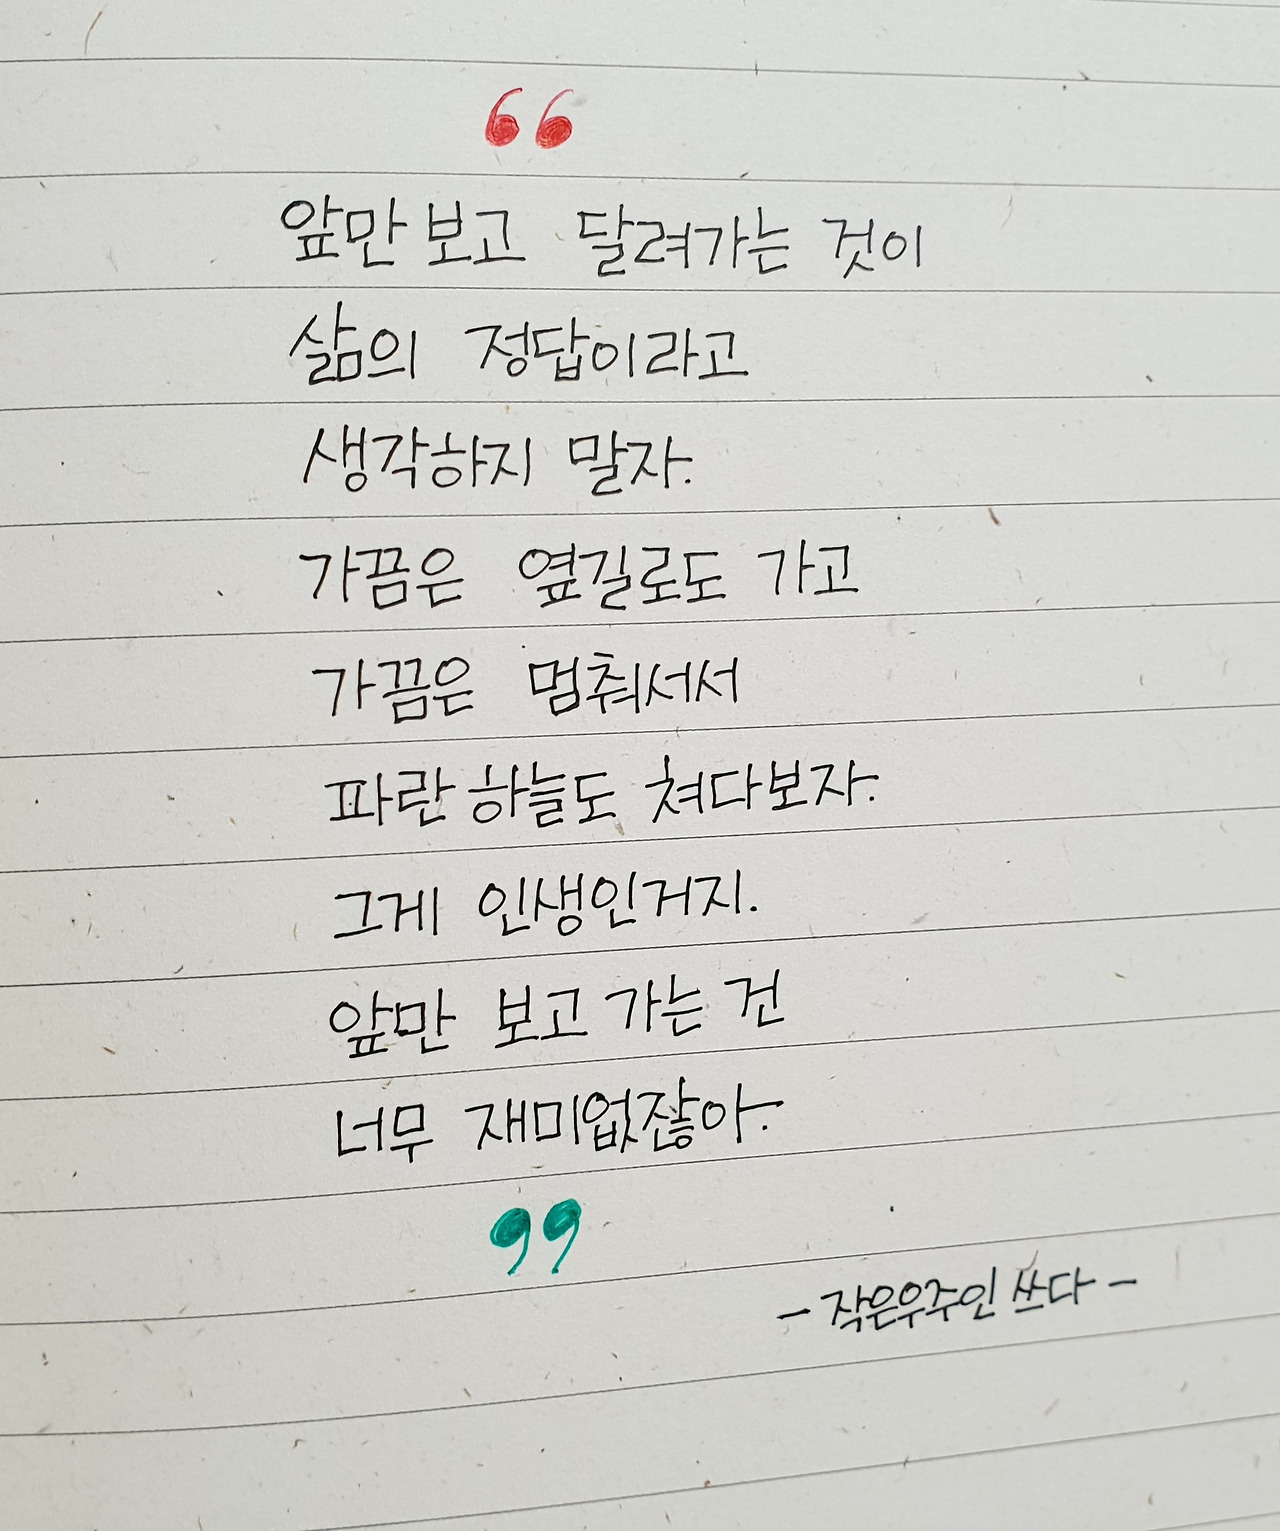 ❝
앞만 보고 달려가는 것이
삶의 정답이라고
생각하지 말자.
가끔은 옆길로도 가고
가끔은 멈춰서서
파란 하늘도 쳐다보자.
그게 인생인거지.
앞만 보고 가는 건
너무 재미없잖아.
❞
- 작은우주인 쓰다 -